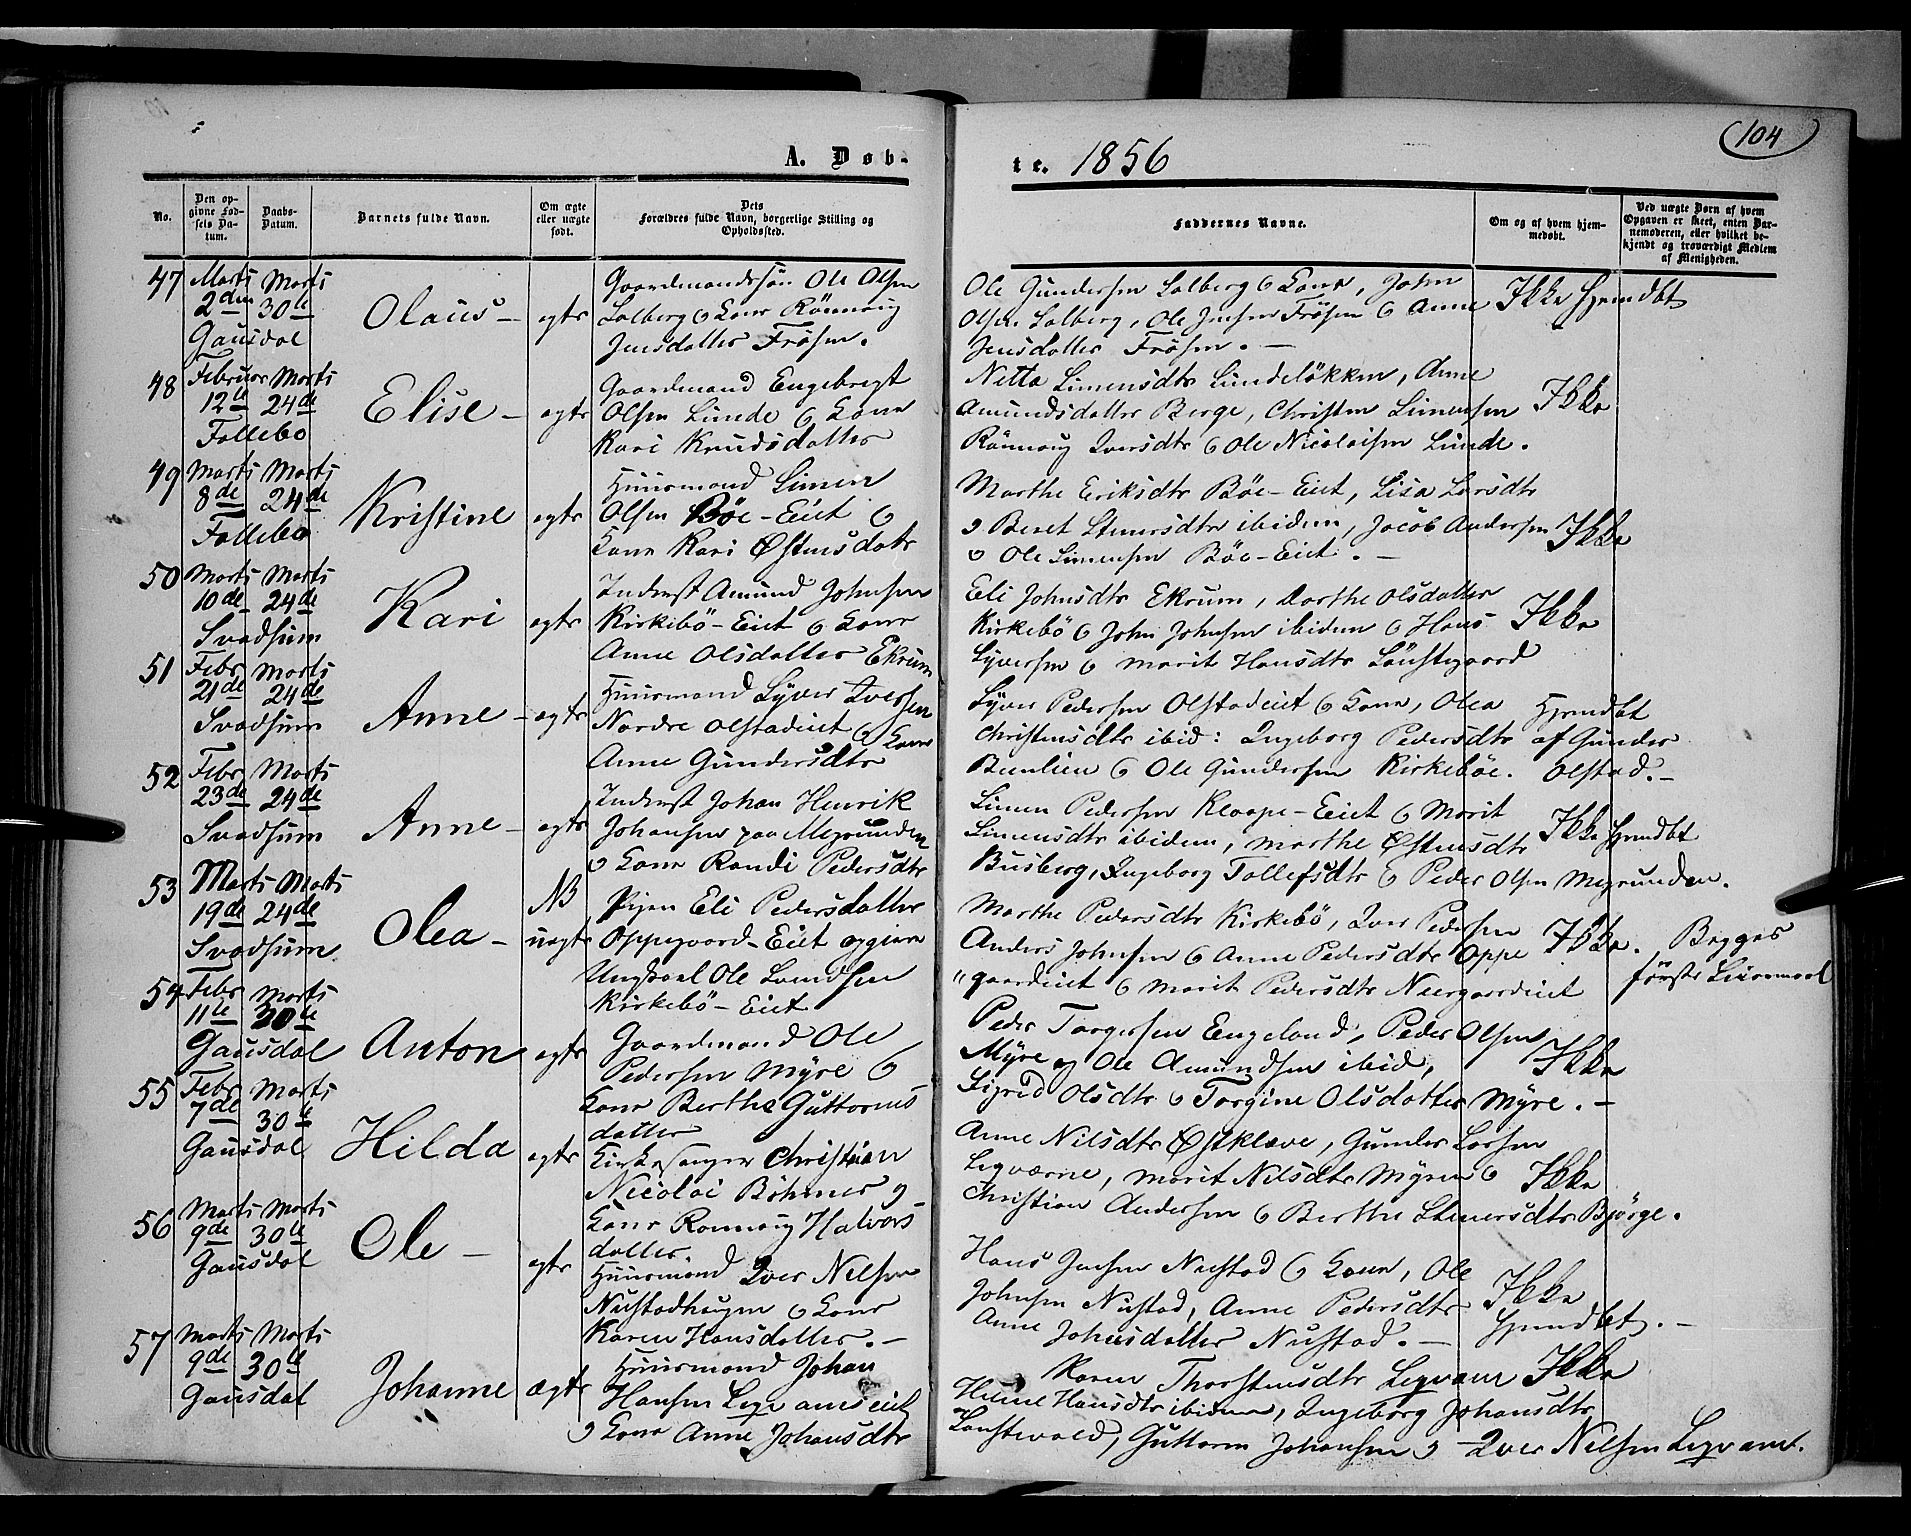 104
A. Døb-
te. 1856
No.
Den opgivne Fødsels Datum.
Daabs-Datum.
Barnets fulde Navn.
Om ægte eller uægte født.
Dets Forældres fulde Navn, borgerlige Stilling og Opholdssted.
Faddernes Navne.
Om og af hvem hjemmedøbt.
Ved uægte Børn af hvem Opgaven er skeet, enten Barnemoderen, eller hvilket bekjendt og troværdigt Medlem af Menigheden.
47 Marts 2den Marts 30te Gausdal
Olaus - ægte
Gaardmandssøn Ole Olsen
Solberg & Kone Rønnaug
Jensdatter Frøsen.
Ole Gundersen Solberg & Kone, John
Olsen Solberg, Ole Jensen Frøsen & Anne
Jensdatter Frøsen. -
Ikke Hjemdbt
48 Februar 12te Marts 24de Follebo
Elise - ægte
Gaardmand Engebregt
Olsen Linde & Kone
Kari Knudsdatter
Netta Simensdtr Lindeløkken, Anne
Amundsdatter Berge, Christen Simensen
Rønnaug Iversdtr & Ole Nicolaisen Linde.
Ikke
49 Marts 8de Marts 24de Follebo
Kristine ægte
Huusmand Simen
Olsen Bøe-Eiet &
Kone Kari Østensdatr
Marthe Eriksdtr Bøe-Eiet, Lisa Larsdtr
& Beret Steenersdtr ibidem, Jacob Andersen
& Ole Simensen Bøe-Eiet. -
Ikke
50 Marts 10de Marts 24de Svadsum
Kari ægte
Inderst Amund Johnsen
Kirkebö-Eiet & Kone
Anne Olsdatter Ekrum
Eli Johnsdtr Ekrum, Dorthe Olsdatter
Kirkebö & John Johnsen ibidem & Hans
Syversen & Marit Hansdtr
Ikke
51 Febr 21de Marts 24de Svadsum
Anne - ægte
Huusmand Syver Iversen
Nordre Olstadeiet & Kone
Anne Gundersdtr
Syver Pedersen Olstadeiet & Kone, Olea
Christensdtr ibid: Ingeborg Pedersdtr
& Ole Gundersen Kirkebøe.
Hjemdbt
af Gunder
Olstad. -
52 Febr 23de Marts 24de Svadsum
Anne - ægte
Inderst Johan Henrik
Johansen paa Megrunden
& Kone Randi Pedersdtr
Simen Pedersen Kloppe-Eiet & Marit
Simensdtr ibidem, Marthe Østensdtr
Busberg, Ingeborg Tollefsdtr & Peder Olsen Megrunden.
Ikke Hjemdbt
53 Marts 19de Marts 24de Svadsum
Olea - NB uægte
Pigen Eli Pedersdatter
Oppegaard-Eiet opgiven
Ungkarl Ole
Kirkebö-Eiet
Marthe Pedersdtr Kirkebö, Iver Pedersen
Anders Johnsen & Anne Pedersdtr Oppe
"gaardeiet & Marit Pedersdtr Neergaardeiet
Ikke.
Begges
første Leiermaal
54 Febr 11te Marts 30te Gausdal
Anton ægte
Gaardmand Ole
Pedersen Myre &
Kone Berthe Guttorms
datter
Peder Torgersen Engeland, Peder Olsen
Myre og Ole Amundsen ibid,
Sigrid Olsdtr & Torgine Olsdatter Myre. -
Ikke
55 Febr 7de Marts 30te Gausdal
Hilda ægte
Kirkesanger Christian
Nicolai Böhmer &
Kone Rønnaug Halvors
datter.
Anne Nilsdtr Østklæve, Gunder Larsen
Segværne, Marit Nilsdtr Myren &
Christian Andersen & Berthe Steenersdtr Bjørge.
Ikke
56 Marts 9de Marts 30te Gausdal
Ole - ægte
Huusmand Iver Nilsen
Nustadhaugen & Kone
Karen Hansdatter. -
Hans Jensen Nustad & Kone, Ole
Johnsen Nustad, Anne Pedersdtr
Anne Johnsdatter Nustad. -
Ikke
Hjemdbt. -
57 Marts 9de Marts 30te Gausdal
Johanne ægte
Huusmand Johan
Hansen Segvameiet
& Kone Anne Johansdtr
Karen Thorstensdtr Segvam
Helene Hansdtr ibidem, Ingeborg Johansdtr
Guttorm Johansen & Iver Nilsen Segvam.
Ikke